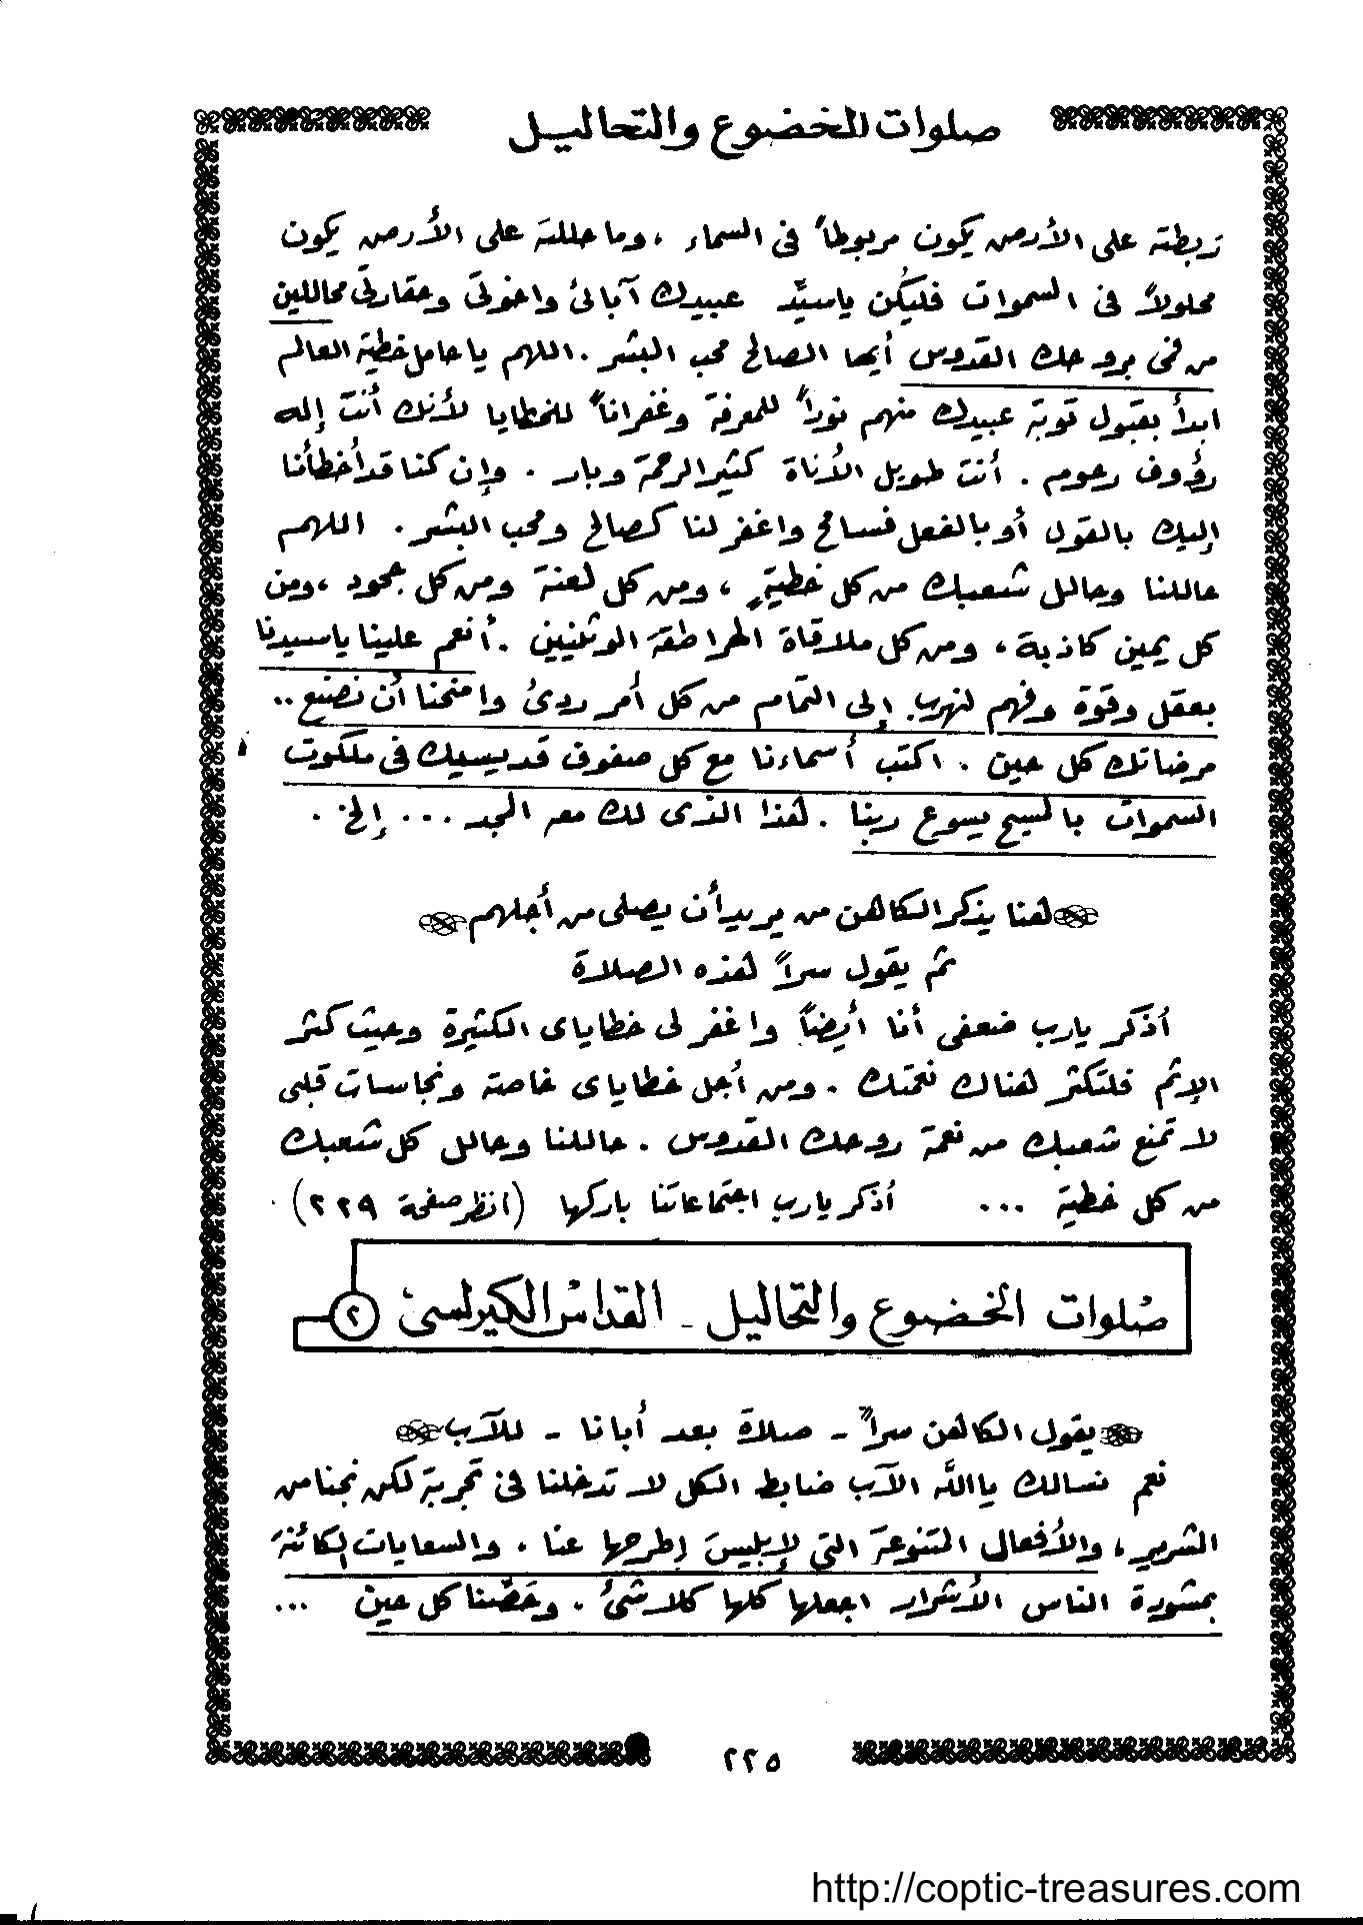 صلوات للخضوع والتحاليل
ربطته على الأرض يكون مربوطاً فى السماء ، وما حللته على الأرض يكون
محلولاً فى السموات فليكُن ياسيِّد عبيدك آبائى واخوتى وحقارتى محاللين
من فمى بروحك القدوس أيها الصالح محب البشر . اللهم يا حامل خطية العالم
ابدأ بقبول توبة عبيدك منهم نوراً للمعرفة وغفراناً للخطايا لأنك أنت إله
رؤوف رحوم . أنت طويل الأناة كثير الرحمة وبار . وإن كنا قد أخطأنا
إليك بالقول أو بالفعل فسامح واغفر لنا كصالح ومحب البشر . اللهم
حاللنا وحالل شعبك من كل خطيةٍ ، ومن كل لعنة ومن كل جحود ، ومن
كل يمين كاذبة ، ومن كل ملاقاة الهراطقة الوثنيين . أنعم علينا ياسيدنا
بعقل وقوة وفهم لنهرب إلى التمام من كل أمر ردئ وامنحنا أن نصنع ..
مرضاتك كل حين . اكتب أسماءنا مع كل صفوف قديسيك فى ملكوت
السموات بالمسيح يسوع ربنا . هذا الذى لك معه المجد ... إلخ .
هنا يذكر الكاهن من يريد أن يصلى من أجلهم
ثم يقول سراً هذه الصلاة
أذكر يارب ضعفى أنا أيضاً واغفر لى خطاياى الكثيرة وحيث كثر
الإثم فلتكثر هناك نعمتك . ومن أجل خطاياى خاصة ونجاسات قلبى
لا تمنع شعبك من نعمة روحك القدوس . حاللنا وحالل كل شعبك
من كل خطية ... أذكر يارب اجتماعاتنا باركها (انظر صفحة ٢٢٩)
صلوات الخضوع والتحاليل - القداس الكيرلسى ٢
يقول الكاهن سراً - صلاة بعد أبانا - للآب
نعم نسالك ياالله الآب ضابط الكل لا تدخلنا فى تجربة لكن نجنا من
الشرير ، والأفعال المتنوعة التى لإبليس إطرحها عنا . والسعايات الكائنة
بمشورة الناس الأشرار اجعلها كلها كلا شئ . وحَصِّنا كل حين ...
٢٢٥
http://coptic-treasures.com